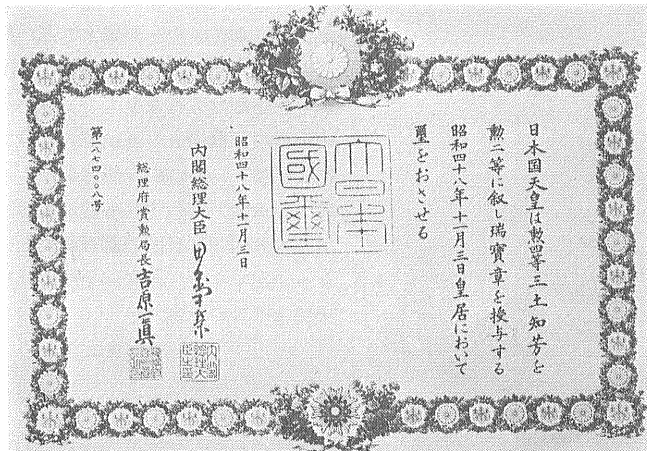 日本国天皇は勲四等三土知芳を
勲二等に叙し瑞寶章を授与する
昭和四十八年十一月三日皇居において
璽をおさせる
大日本國璽
昭和四十八年十一月三日
内閣総理大臣 田中角栄
総理府賞勲局長 吉原一眞
第一八七四〇〇八号